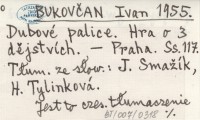 BUKOVČAN Ivan 1955.
Dubové palice. Hra o 3
dějstvích. — Praha. Ss. 117.
Tłum. ze słow.: J. Smažík,
H. Tylinková.
Jest to czes. tłumaczenie
BT/007/0318 %